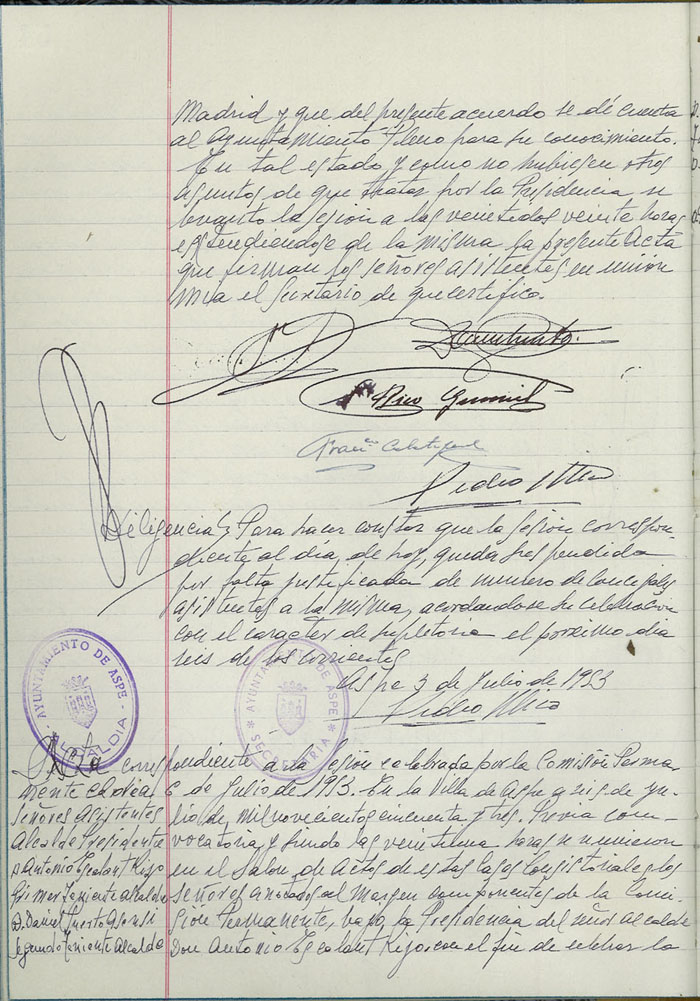 Madrid y que del presente acuerdo se dé cuenta
al Ayuntamiento Pleno para su conocimiento.
En tal estado y como no hubiesen otros
asuntos de que tratar por la Presidencia se
levantó la sesión a las veintidos veinte horas
estendiendose de la misma la presente Acta
que firman los señores asistentes en union
mia el Secretario de que certifico.
Rico
Pedro
Diligencia Para hacer constar que la sesión correspon-
diente al dia de hoy, queda suspendida
por falta justificada de numero de Concejales
asistentes a la misma, acordandose su celebración
con el caracter de supletoria el proximo dia
seis de los corrientes
Aspe 3 de Julio de 1953
Pedro
AYUNTAMIENTO DE ASPE
ALCALDIA
AYUNTAMIENTO DE ASPE
SECRETARIA
Acta correspondiente a la sesión celebrada por la Comisión Perma-
nente el dia 6 de Julio de 1953. En la Villa de Aspe a seis de Ju-
Señores Asistentes
lio de mil novecientos cincuenta y tres. Previa con-
Alcalde Presidente
vocatoria, y siendo las veintiuna horas se reunieron
D Antonio Escalant Rijo
en el Salon de actos de estas Casas Consistoriales los
Primer Teniente alcalde
señores anotados al margen componentes de la Comi-
D. Daniel Puerto Asensi
sion Permanente, bajo la Presidencia del señor Alcalde
Segundo Teniente Alcalde
Don Antonio Escalant Rijo, con el fin de celebrar la